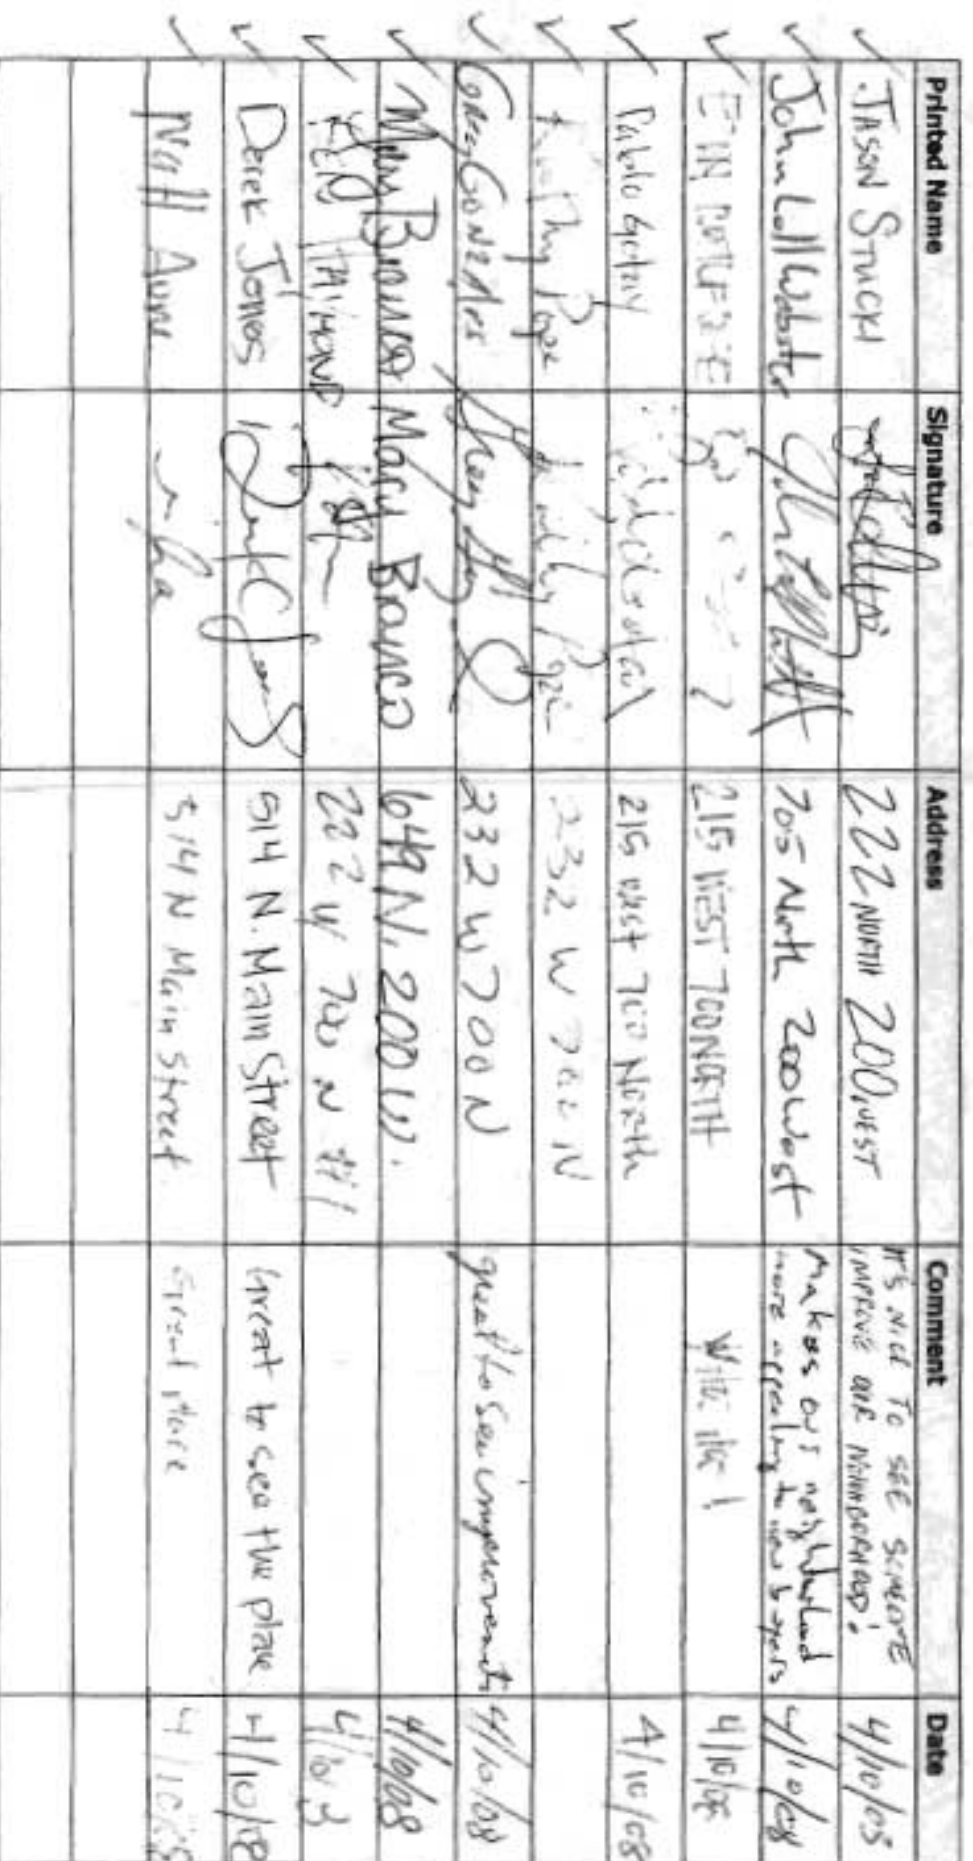 Printed Name Signature Address Comment Date
✓ JASON STUCKI 222 NORTH 200 WEST IT'S NICE TO SEE SOMEONE
IMPROVE OUR NEIGHBORHOOD! 4/10/08
✓ John Lall Webster 705 North 200 West Makes our neighborhood
more appealing to new buyers 4/10/08
✓ 215 WEST 700 NORTH 4/10/08
✓ Pablo 215 west 700 North 4/10/08
✓ Timothy Pope Timothy Pope 232 W 700 N
✓ Greg Gonzales 232 W 700 N great to see improvements 4/10/08
✓ Mary Branca Mary Branca 649 N. 200 W. 4/10/08
✓ 222 W 700 N #1 4/10/08
✓ Derek Jones 514 N. Main Street Great to see the place 4/10/08
✓ Matt 514 N Main Street Great place 4/10/08